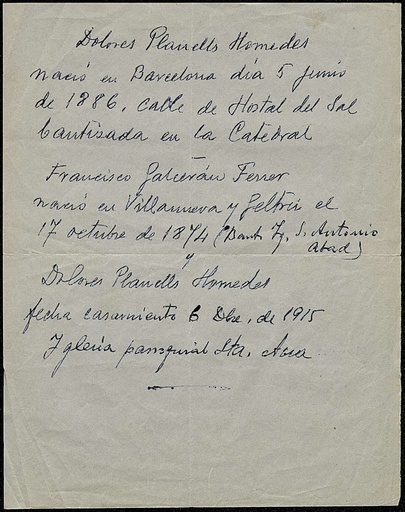 Dolores Planells Homedes
nació en Barcelona día 5 junio
de 1886, calle de Hostal del Sol
bautizada en la Catedral
—
Francisco Galcerán Ferrer
nació en Villanueva y Geltrú el
17 octubre de 1874 (Baut. Ig. S. Antonio
Abad)
y
Dolores Planells Homedes
fecha casamiento 6 Dbre. de 1915
Iglesia parroquial Sta. Ana